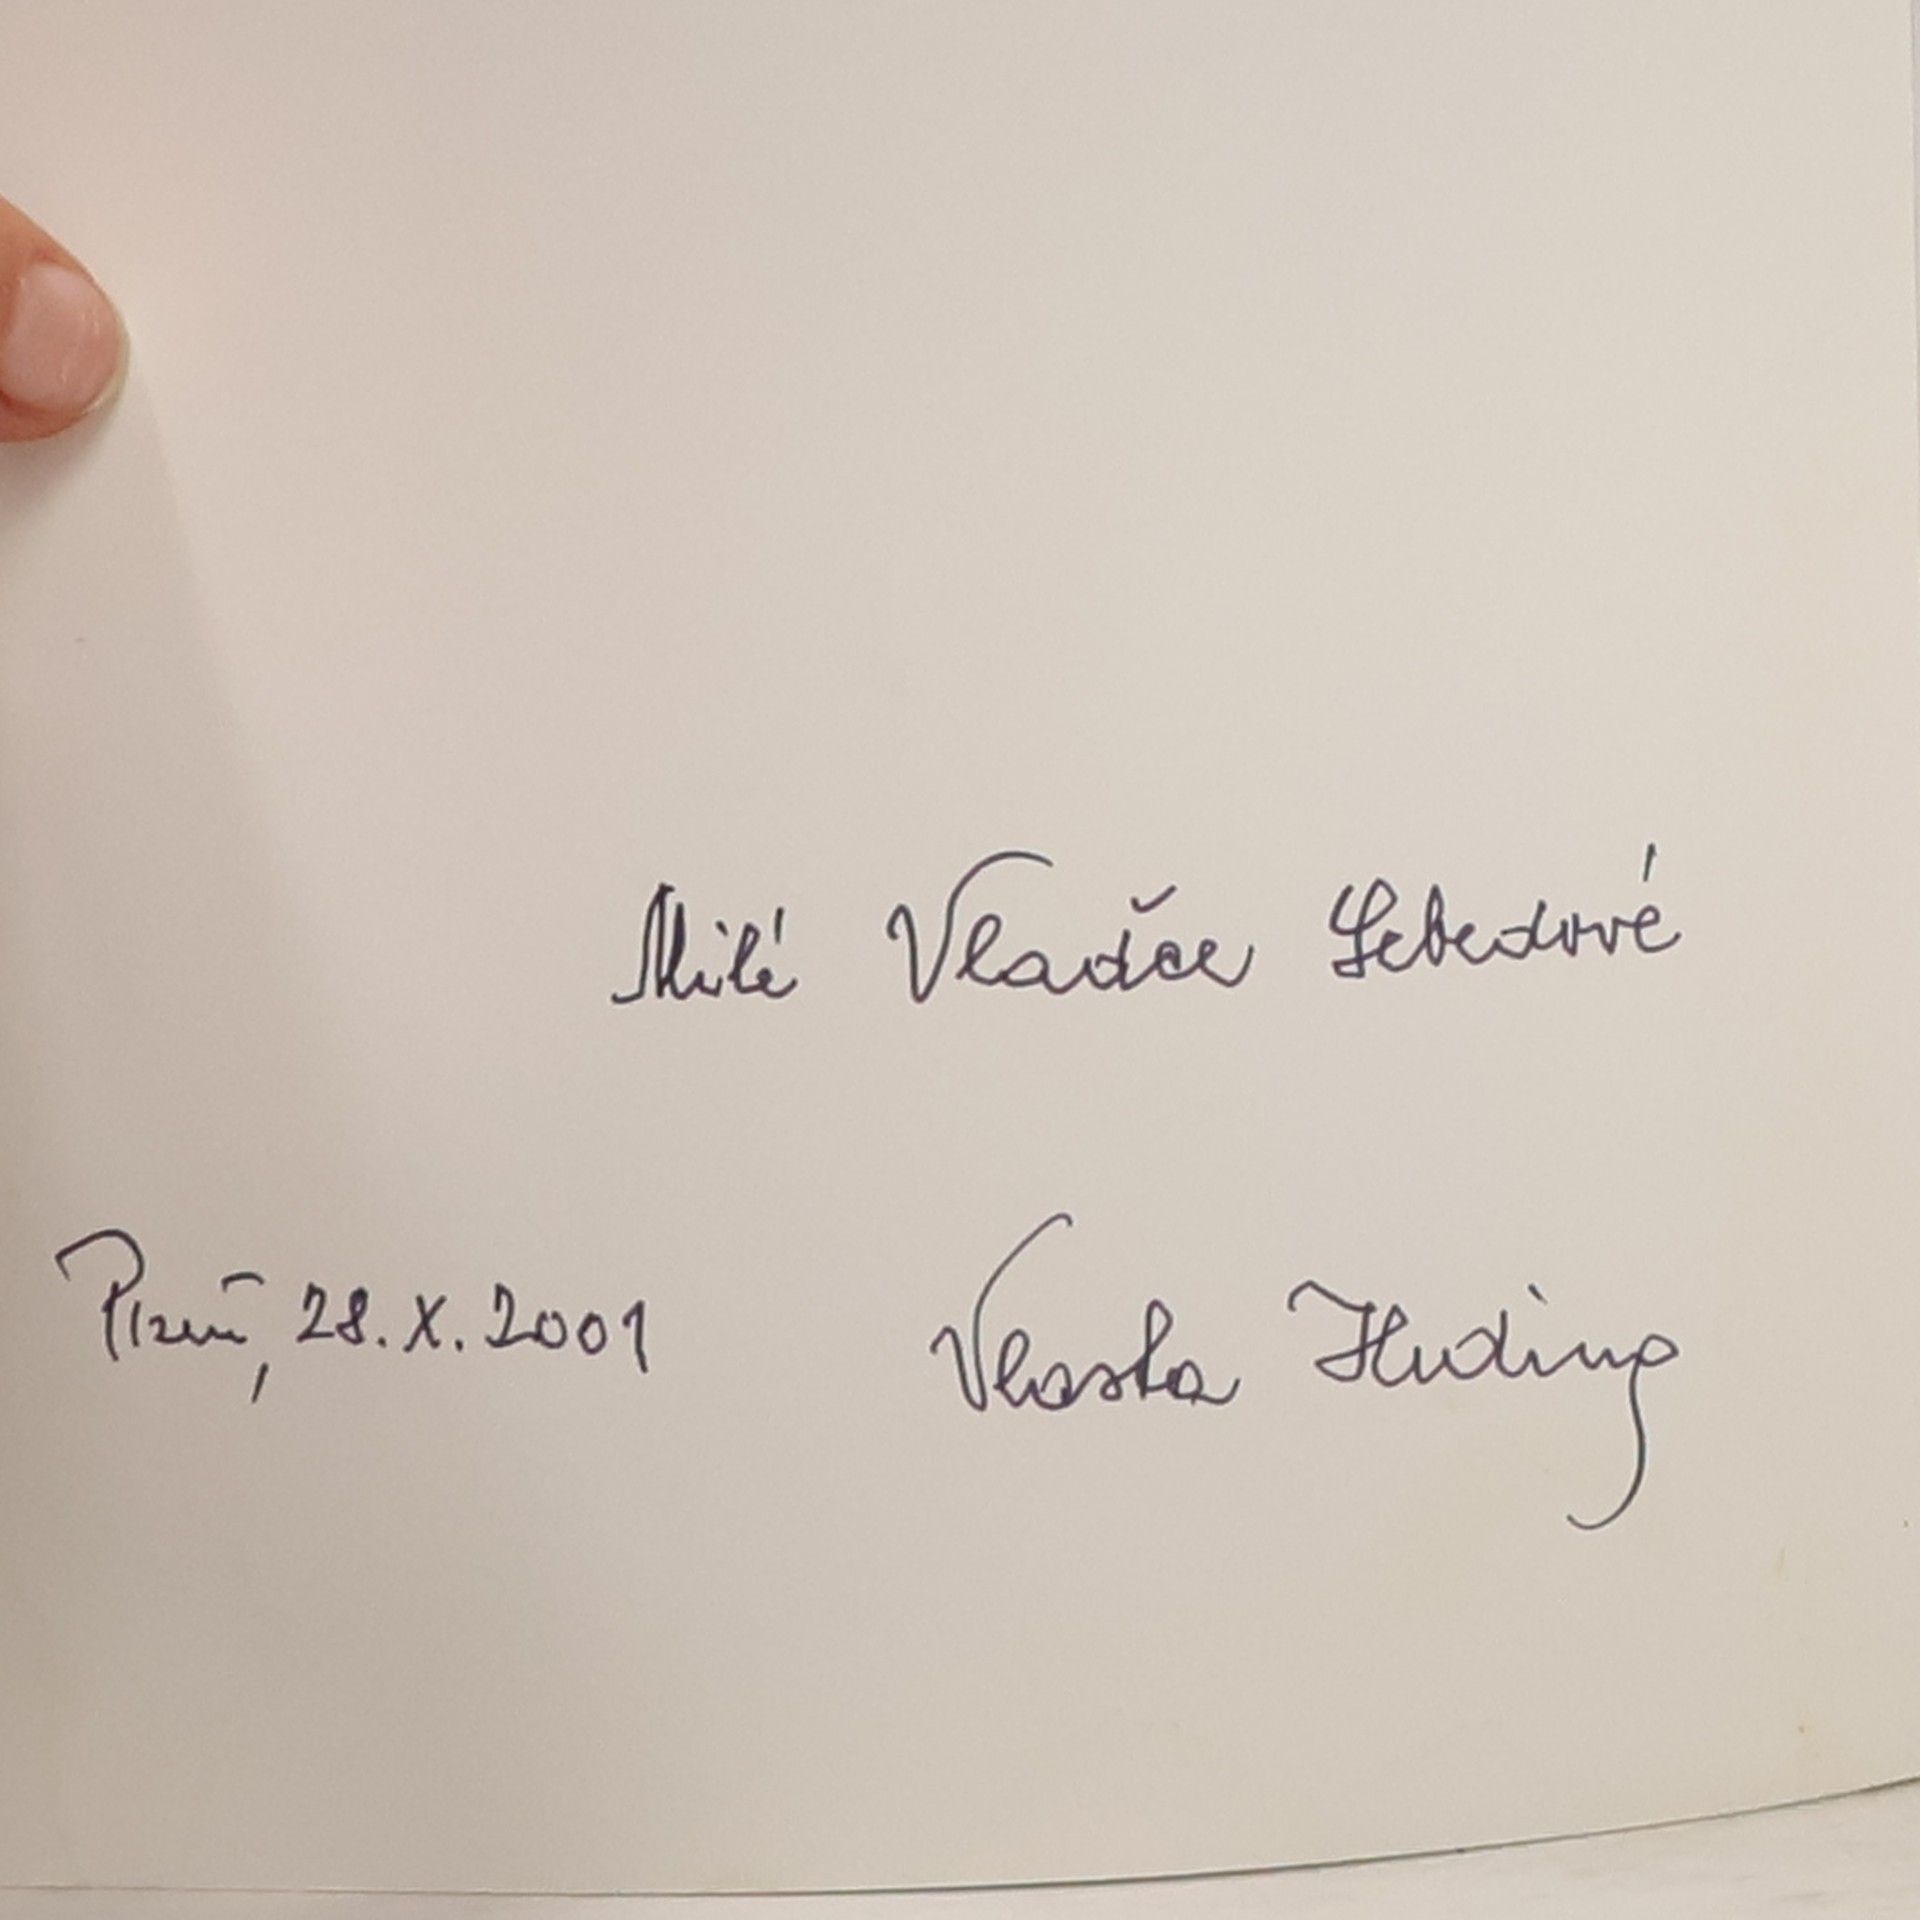 Milé Vladče Lebedové
Plzeň, 28. X. 2001 Vlasta